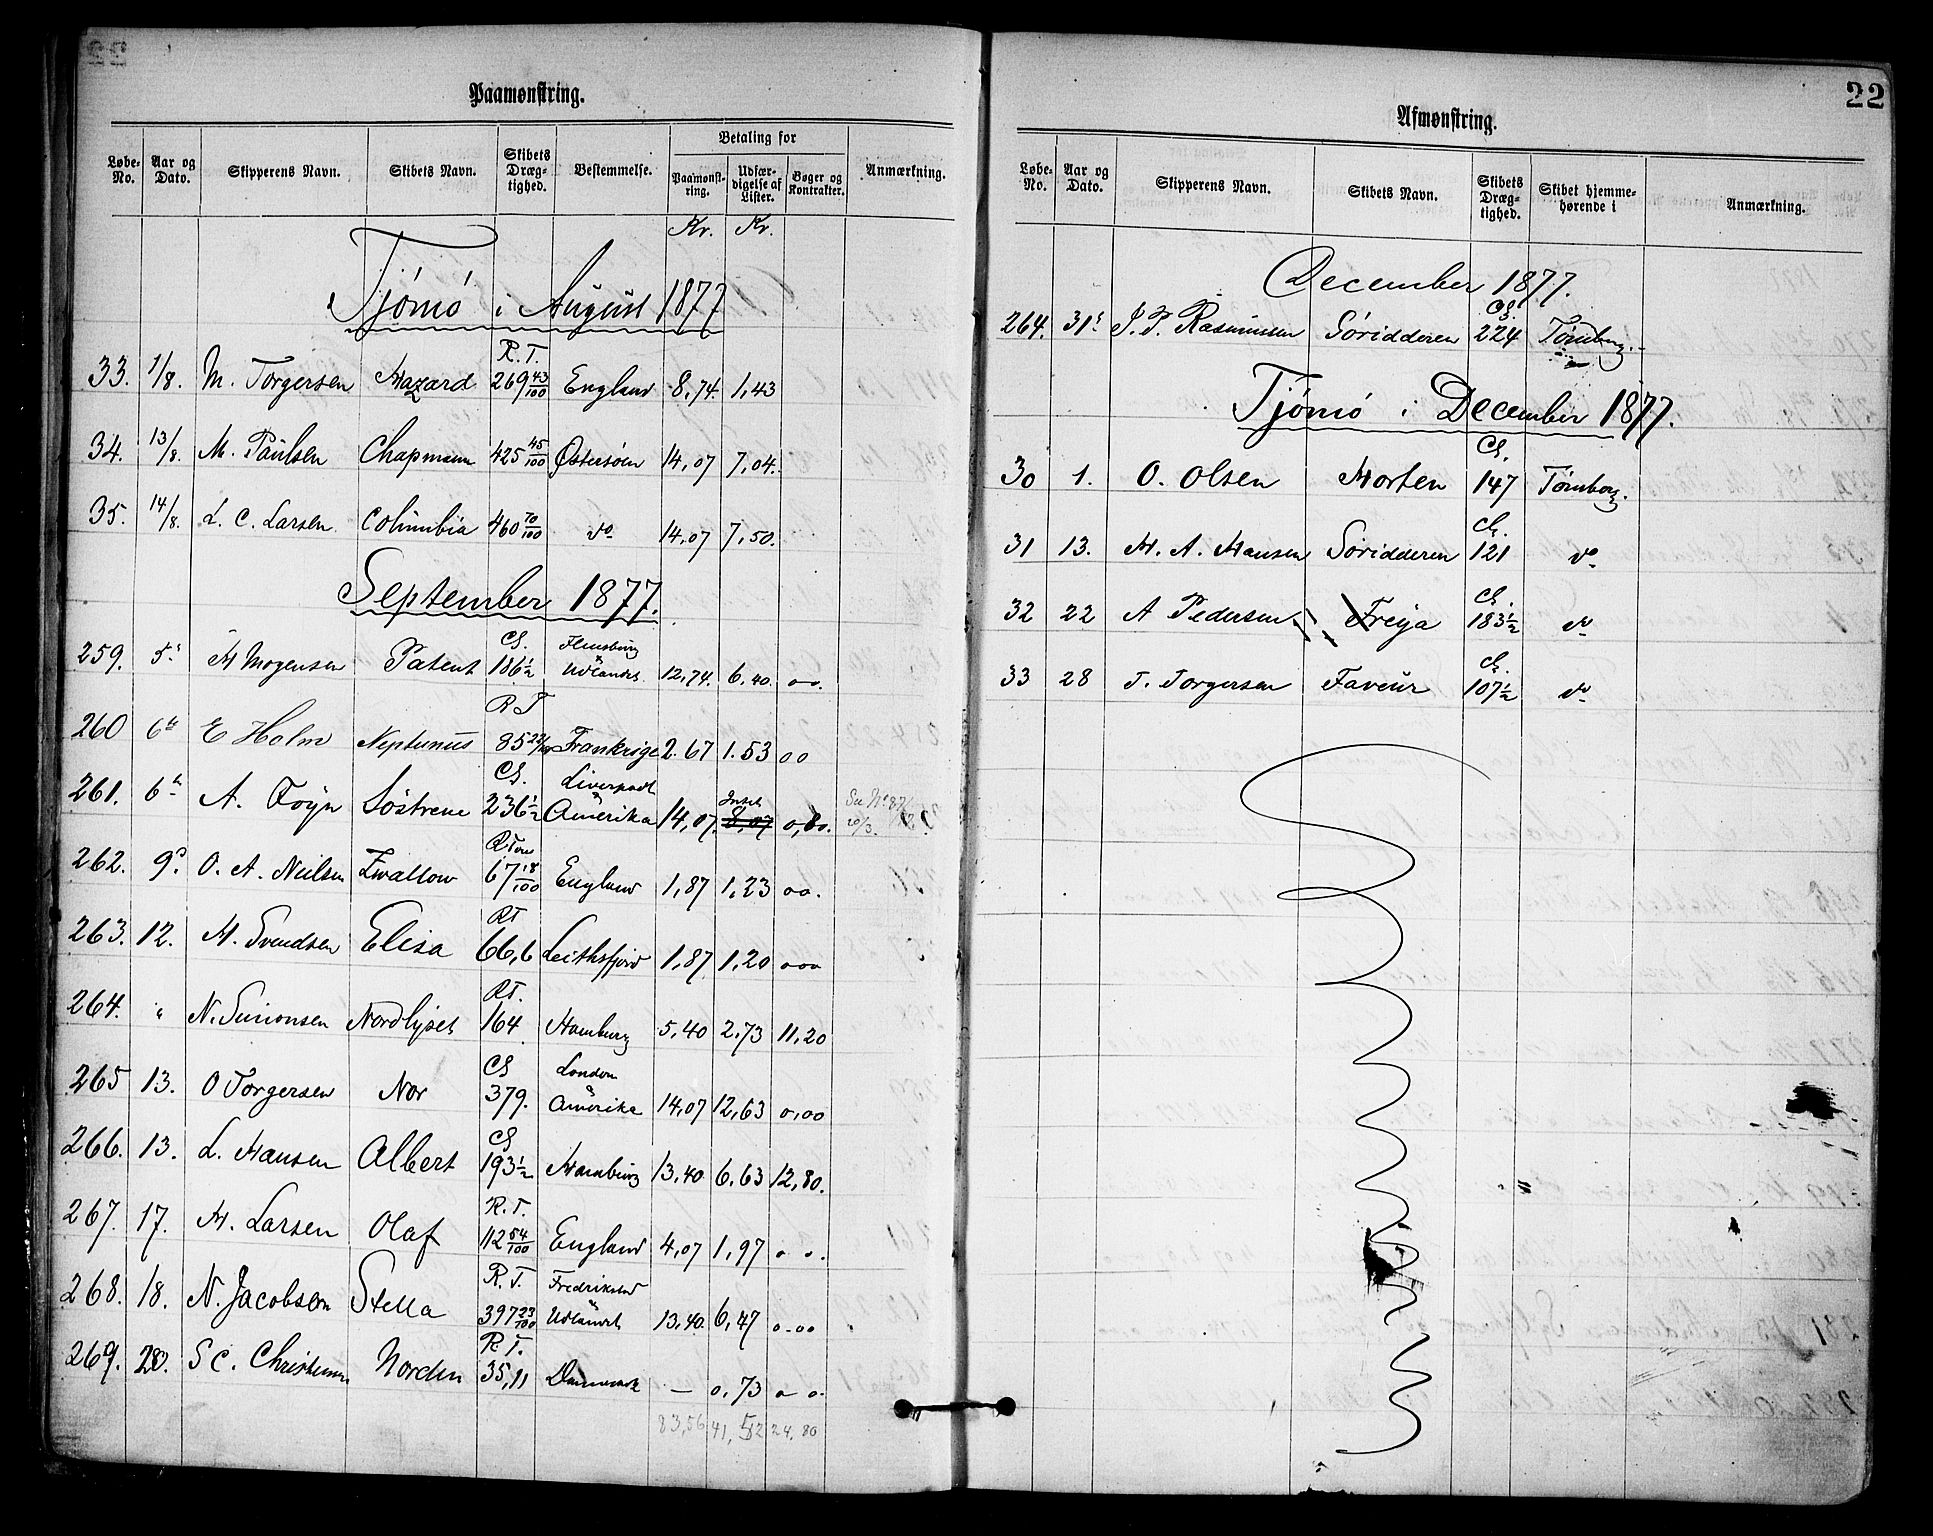 22
Paamønstring.
Løbe-No. Aar og Dato. Skipperens Navn. Skibets Navn. Skibets Dræg-tighed. Bestemmelse. Betaling for Paamønst-ring. Udfær-digelse af Lister. Bøger og Kontrakter. Anmærkning.
Kr. Kr.
Tjømø i August 1877
R. T.
33. 1/8. M. Torgersen Hazard 269 43/100 England 8,74 1,43
34. 13/8. M. Paulsen Chapmann 425 45/100 Østersøen 14,07 7,04.
35. 14/8. L. C. Larsen Columbia 460 70/100 do 14,07 7,50.
September 1877.
Cl. Flensburg
259. 5. H Mogensen Patent 186 1/2 & Udlandet 12,74. 6,40. 00.
R T
260 6te E Holm Neptunus 85 22/100 Frankrige 2.67 1.53 00
Cl. Liverpool
261. 6te A. Foyn Søstrene 236 1/2 & Amerika 14,07. Intet 8,07 0,80. See No 87/ 20/3.
R Tons
262. 9. O. A. Nielsen Swallow 67 18/100 England 1,87 1,23 00.
RT
263. 12. H. Svendsen Elisa 66,6 Leithsfjord 1,87. 1,20 000
RT.
264. " N. Simonsen Nordlyset 164 Hamburg 5,40 2,73 11,20
Cl London
265 13. O Torgersen Nor 379. & Amerika 14,07 12,63 0,00
Cl
266. 13. L. Hansen Albert 193 1/2 Hamburg 13,40 6,63 12,80.
R. T.
267. 17. H. Larsen Olaf 112 54/100 England 4,07 1,97 0 0.
R. T. Fredrikstad
268. 18. N. Jacobsen Stella 397 23/100 & Udlandet 13,40. 6,47 0-00
R. T.
269. 20. S C. Christensen Norden 35,11 Danmark — 0,73 0 0.
83,56 41,52 24.80
22
Afmønstring.
Løbe-No. Aar og Dato. Skipperens Navn. Skibets Navn. Skibets Dræg-tighed. Skibet hjemme-hørende i Anmærkning.
December 1877.
Cl.
264. 31. J. P. Rasmussen Søridderen 224 Tønsberg.
Tjømø i December 1877.
Cl.
30 1. O. Olsen Morten 147 Tønsberg.
Cl.
31 13. H. A. Hansen Søridderen 121 do
Cl.
32 22 A Pedersen Freja 183 1/2 do
Cl.
33 28 T. Torgersen Faveur 107 1/2 do